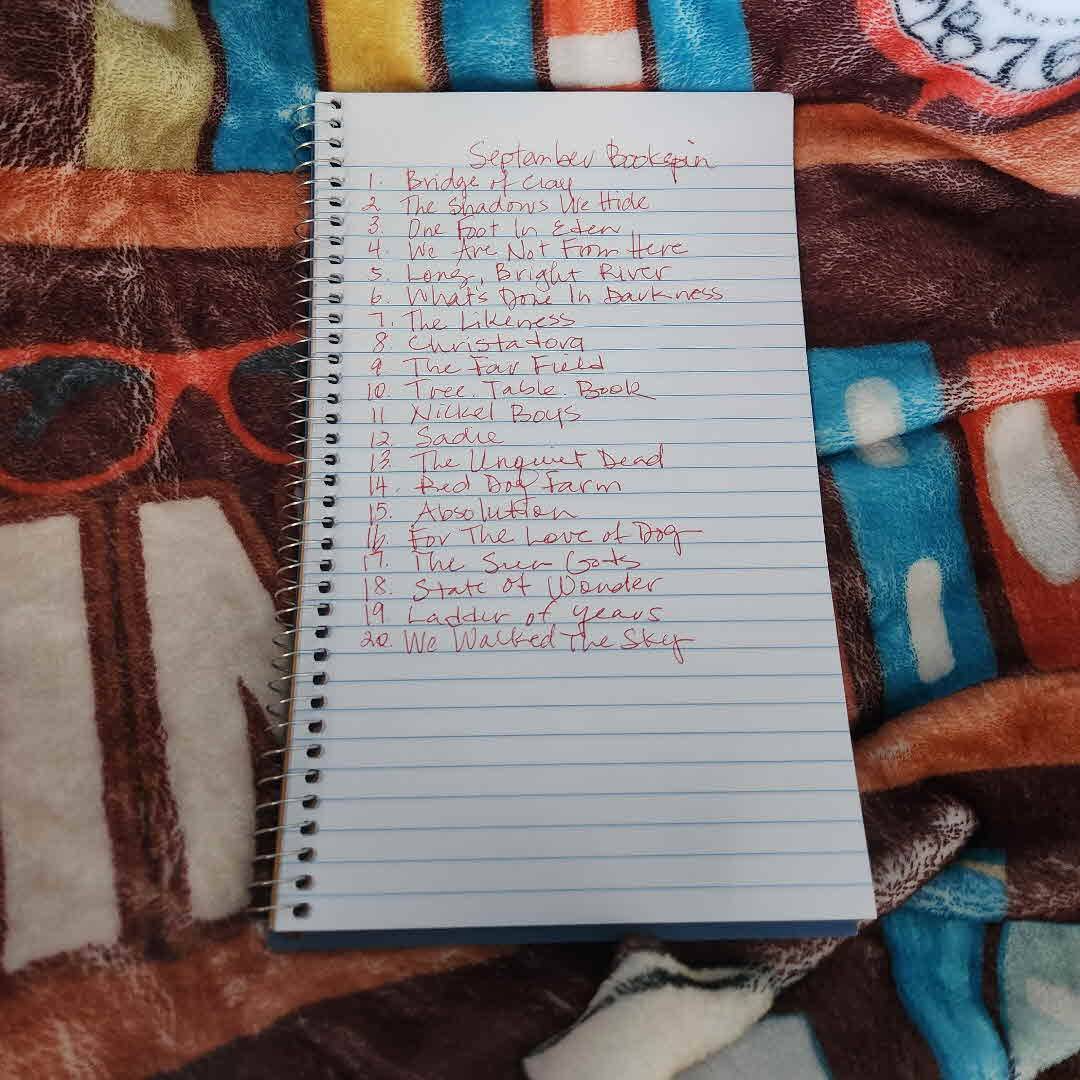 September Bookspin
1. Bridge of Clay
2 The Shadows We Hide
3. One Foot In Eden
4. We Are Not From Here
5. Long, Bright River
6. What's Done In Darkness
7. The Likeness
8. Christadora
9 The Far Field
10. Tree. Table. Book
11 Nickel Boys
12. Sadie
13. The Unquiet Dead
14. Red Dog Farm
15. Absolution
16. For The Love of Dog
17. The Sun Goats
18. State of Wonder
19 Ladder of Years
20. We Walked The Sky
9876